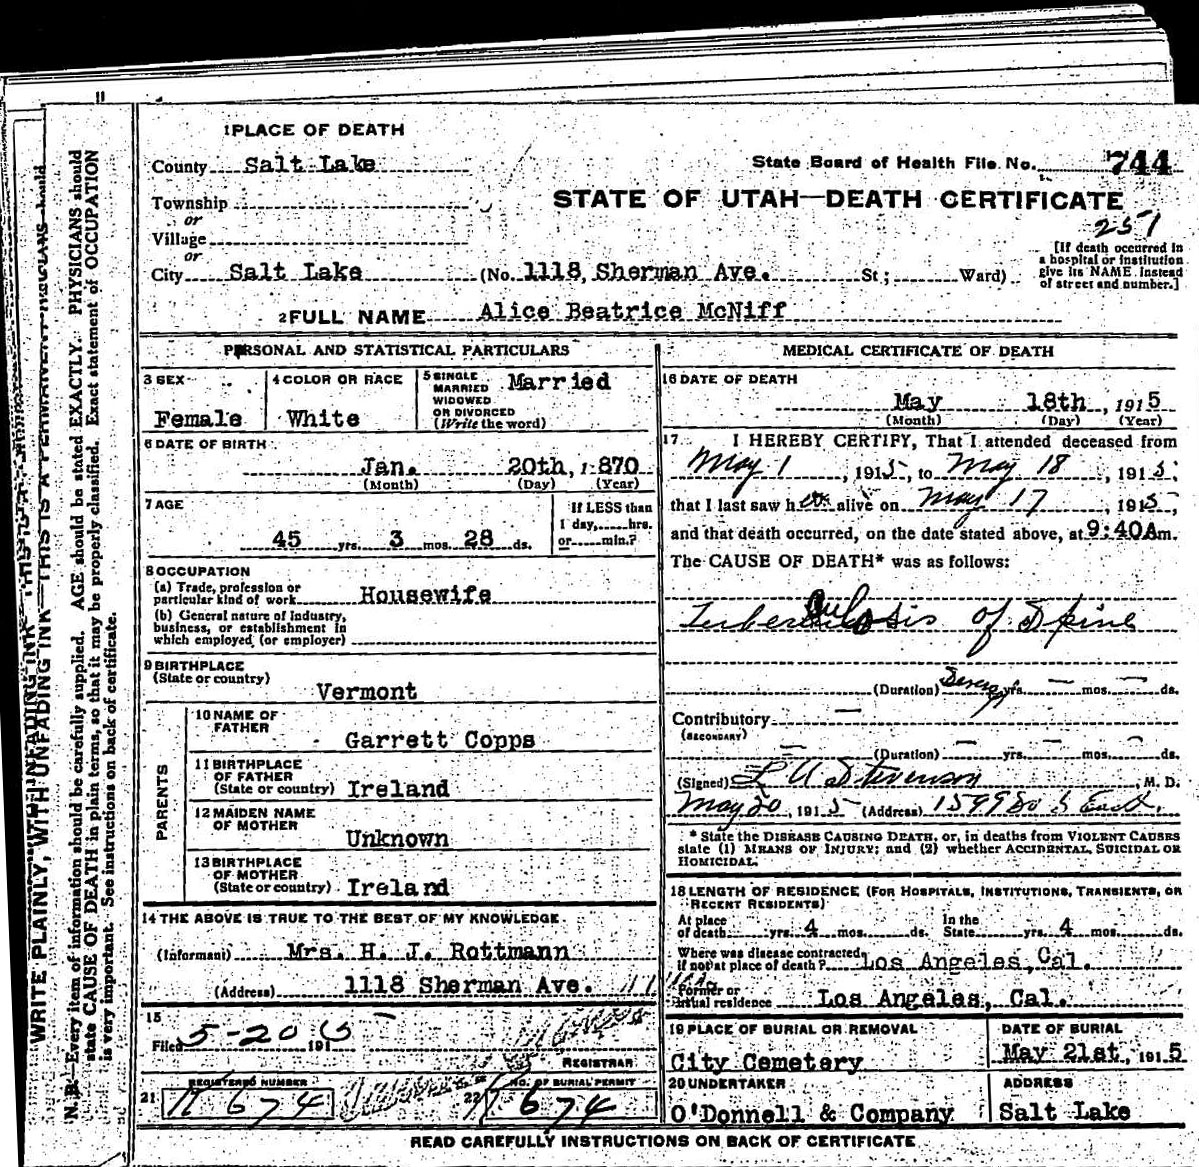 1 PLACE OF DEATH
County Salt Lake
State Board of Health File No. 744
Township
or
Village
or
STATE OF UTAH—DEATH CERTIFICATE
257
City Salt Lake (No. 1118, Sherman Ave. St; Ward)
[If death occurred in
a hospital or institution
give its NAME instead
of street and number.]
2 FULL NAME Alice Beatrice McNiff
PERSONAL AND STATISTICAL PARTICULARS
3 SEX
Female
4 COLOR OR RACE
White
5 SINGLE
MARRIED
WIDOWED
OR DIVORCED
(Write the word)
Married
6 DATE OF BIRTH
Jan. 20th, 1870
(Month) (Day) (Year)
7 AGE
45 yrs. 3 mos. 28 ds.
If LESS than
1 day, hrs.
or min.?
8 OCCUPATION
(a) Trade, profession or
particular kind of work Housewife
(b) General nature of industry,
business, or establishment in
which employed (or employer)
9 BIRTHPLACE
(State or country)
Vermont
PARENTS
10 NAME OF
FATHER
Garrett Copps
11 BIRTHPLACE
OF FATHER
(State or country) Ireland
12 MAIDEN NAME
OF MOTHER
Unknown
13 BIRTHPLACE
OF MOTHER
(State or country) Ireland
14 THE ABOVE IS TRUE TO THE BEST OF MY KNOWLEDGE
(Informant) Mrs. H. J. Rottmann
(Address) 1118 Sherman Ave.
15
Filed 5-20 1915
REGISTRAR
REGISTERED NUMBER
21 674
NO. OF BURIAL PERMIT
22 674
MEDICAL CERTIFICATE OF DEATH
16 DATE OF DEATH
May 18th, 1915
(Month) (Day) (Year)
17 I HEREBY CERTIFY, That I attended deceased from
May 1, 1915, to May 18, 1915,
that I last saw her alive on May 17, 1915,
and that death occurred, on the date stated above, at 9:40 A m.
The CAUSE OF DEATH* was as follows:
Tuberculosis of Spine
(Duration) yrs. — mos. — ds.
Contributory —
(SECONDARY)
— (Duration) — yrs. — mos. — ds.
(Signed) Stevenson, M. D.
May 20, 1915 (Address)
* State the DISEASE CAUSING DEATH, or, in deaths from VIOLENT CAUSES
state (1) MEANS OF INJURY; and (2) whether ACCIDENTAL, SUICIDAL OR
HOMICIDAL.
18 LENGTH OF RESIDENCE (FOR HOSPITALS, INSTITUTIONS, TRANSIENTS, OR
RECENT RESIDENTS)
At place
of death yrs. 4 mos. ds.
In the
State yrs. 4 mos. ds.
Where was disease contracted,
if not at place of death? Los Angeles, Cal.
Former or
usual residence Los Angeles, Cal.
19 PLACE OF BURIAL OR REMOVAL
City Cemetery
DATE OF BURIAL
May 21st, 1915
20 UNDERTAKER
O'Donnell & Company
ADDRESS
Salt Lake
READ CAREFULLY INSTRUCTIONS ON BACK OF CERTIFICATE
WRITE PLAINLY, WITH UNFADING INK—THIS IS A PERMANENT
N. B.—Every item of information should be carefully supplied. AGE should be stated EXACTLY. PHYSICIANS should
state CAUSE OF DEATH in plain terms, so that it may be properly classified. Exact statement of OCCUPATION
is very important. See instructions on back of certificate.